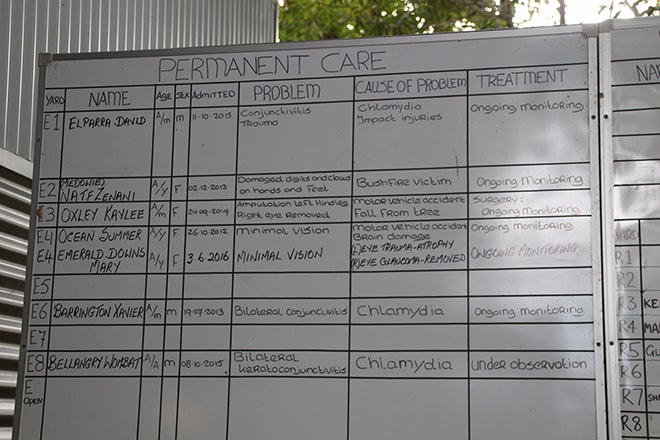 PERMANENT CARE
YARD NAME Age SEX Admitted PROBLEM CAUSE OF PROBLEM TREATMENT
E1 ELPARRA DAVID A/m m 11-10-2015 Conjunctivitis Chlamydia Ongoing monitoring
Trauma Impact injuries
E2 NATFZENANI A/y F 02-12-2013 Damaged digits and claws Bushfire victim Ongoing Monitoring
on hands and feet
E3 OXLEY KAYLEE A/m F Amputation Left Hindleg Motor vehicle accident Surgery:
Right eye Removed Fall From tree Ongoing monitoring
E4 OCEAN SUMMER A/y F 26-10-2012 Minimal vision Motor vehicle acciden Ongoing monitoring
Brain damage
E4 EMERALD DOWNS A/y F 3.6.2016 MINIMAL VISION (L) EYE TRAUMA-ATROPHY ONGOING MONITORING
MARY (R) EYE GLAUCOMA-REMOVED
E5
E6 BARRINGTON XAVIER A/m m 19-07-2013 Bilateral conjunctivitis Chlamydia Ongoing monitoring
E7
E8 BELLANGRY WOMBAT A/A m 08-10-2015 Bilateral Chlamydia under observation
Keratoconjunctivitis
E
OPEN
NA
YARD
R1
R2
R3 KE
R4 MA
R5 GU
R6
R7 SH
R8